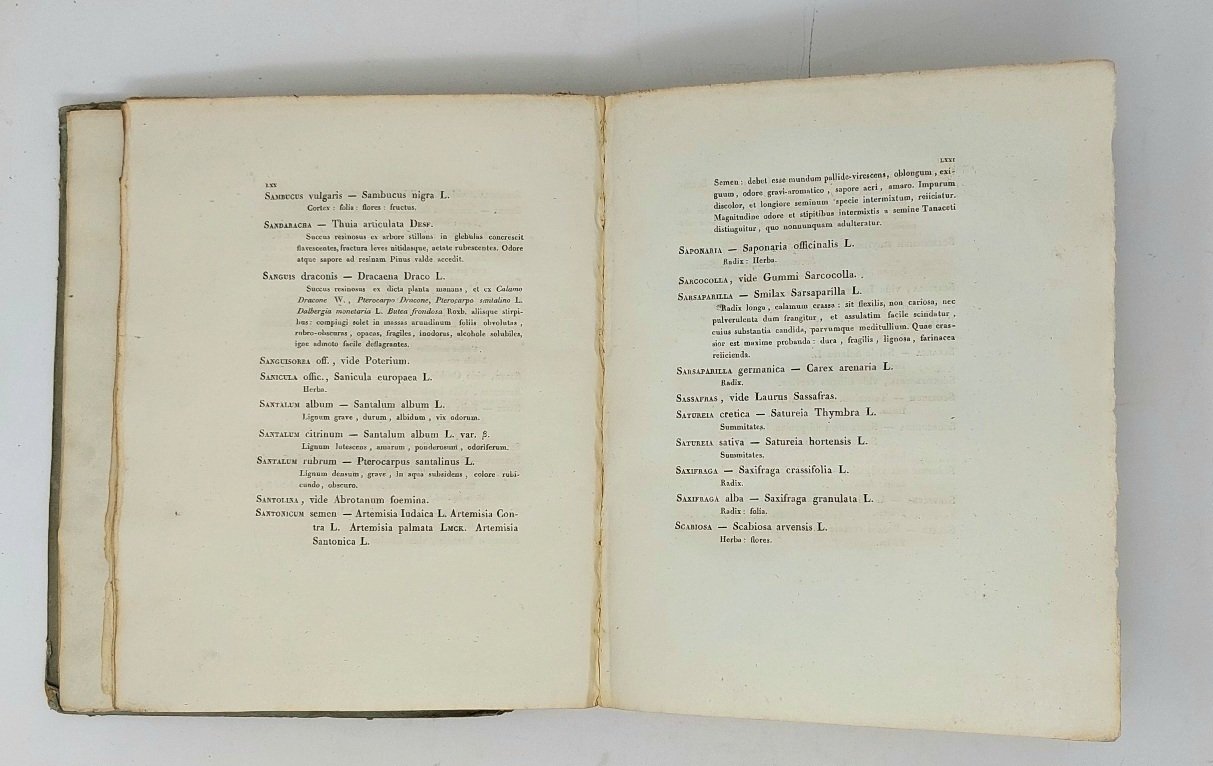 LXX
SAMBUCUS vulgaris — Sambucus nigra L.
Cortex : folia : flores : fructus.
SANDARACHA — Thuia articulata DESF.
Succus resinosus ex arbore stillans in glebulas concrescit
flavescentes, fractura leves nitidasque, aetate rubescentes. Odore
atque sapore ad resinam Pinus valde accedit.
SANGUIS draconis — Dracaena Draco L.
Succus resinosus ex dicta planta manans, et ex Calamo
Dracone W., Pterocarpo Dracone, Pterocarpo santalino L.
Dalbergia monetaria L. Butea frondosa Roxb. aliisque stirpi-
bus: compingi solet in massas arundinum foliis obvolutas,
rubro-obscuras, opacas, fragiles, inodoras, alcohole solubiles,
igne admoto facile deflagrantes.
SANGUISORBA off., vide Poterium.
SANICULA offic., Sanicula europaea L.
Herba.
SANTALUM album — Santalum album L.
Lignum grave, durum, albidum, vix odorum.
SANTALUM citrinum — Santalum album L. var. β.
Lignum lutescens, amarum, ponderosum, odoriferum.
SANTALUM rubrum — Pterocarpus santalinus L.
Lignum densum, grave, in aqua subsidens, colore rubi-
cundo, obscuro.
SANTOLINA, vide Abrotanum foemina.
SANTONICUM semen — Artemisia Iudaica L. Artemisia Con-
tra L. Artemisia palmata LMCK. Artemisia
Santonica L.
LXXI
Semen: debet esse mundum pallide-virescens, oblongum, exi-
guum, odore gravi-aromatico, sapore acri, amaro. Impurum
discolor, et longiore seminum specie intermixtum, reiiciatur.
Magnitudine odore et stipitibus intermixtis a semine Tanaceti
distinguitur, quo nonnunquam adulteratur.
SAPONARIA — Saponaria officinalis L.
Radix: Herba.
SARCOCOLLA, vide Gummi Sarcocolla.
SARSAPARILLA — Smilax Sarsaparilla L.
Radix longa, calamum crassa: sit flexilis, non cariosa, nec
pulverulenta dum frangitur, et assulatim facile scindatur,
cuius substantia candida, parvumque meditullium. Quae cras-
sior est maxime probanda: dura, fragilis, lignosa, farinacea
reiicienda.
SARSAPARILLA germanica — Carex arenaria L.
Radix.
SASSAFRAS, vide Laurus Sassafras.
SATUREIA cretica — Satureia Thymbra L.
Summitates.
SATUREIA sativa — Satureia hortensis L.
Summitates.
SAXIFRAGA — Saxifraga crassifolia L.
Radix.
SAXIFRAGA alba — Saxifraga granulata L.
Radix: folia.
SCABIOSA — Scabiosa arvensis L.
Herba: flores.